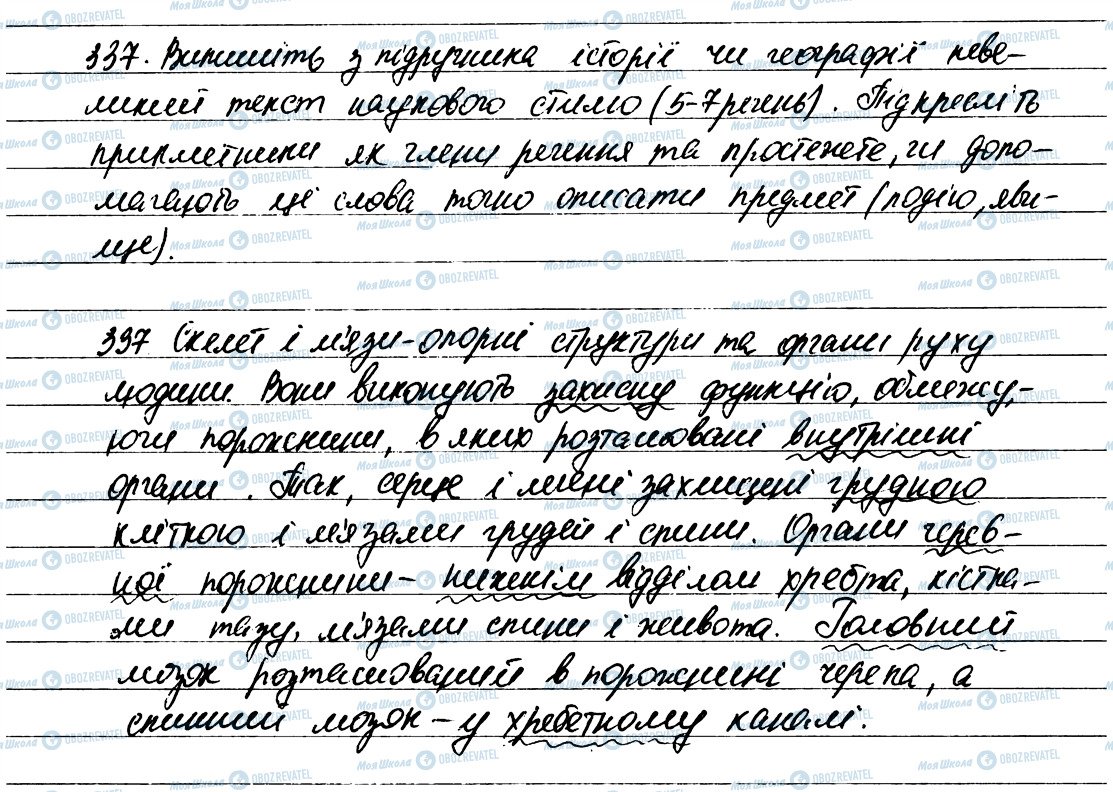 337. Випишіть з підручника історії чи географії неве-
ликий текст наукового стилю (5-7 речень). Підкресліть
прикметники як члени речення та простежте, чи допо-
магають ці слова точно описати предмет (подію, яви-
ще).
337 Скелет і м'язи - опорні структури та органи руху
людини. Вони виконують захисну функцію, обмежу-
ючи порожнини, в яких розташовані внутрішні
органи. Так, серце і легені захищені грудною
кліткою і м'язами грудей і спини. Органи черев-
ної порожнини - нижнім відділом хребта, кістка-
ми тазу, м'язами спини і живота. Головний
мозок розташований в порожнині черепа, а
спинний мозок - у хребетному каналі.